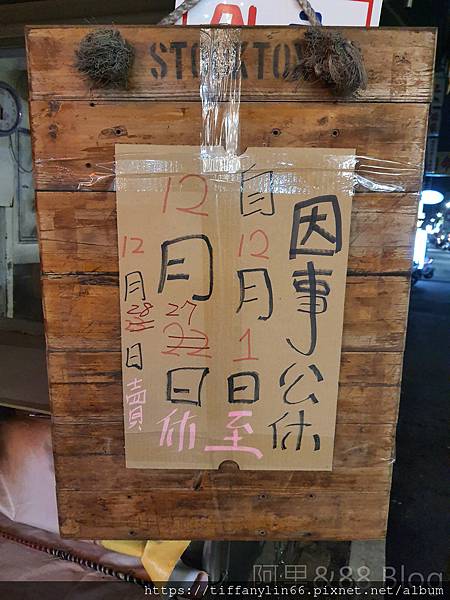 STOCKTON
因事公休
自12月1日至
12月2227日休
12月2228日賣
阿里&88 Blog
https://tiffanylin66.pixnet.net/album